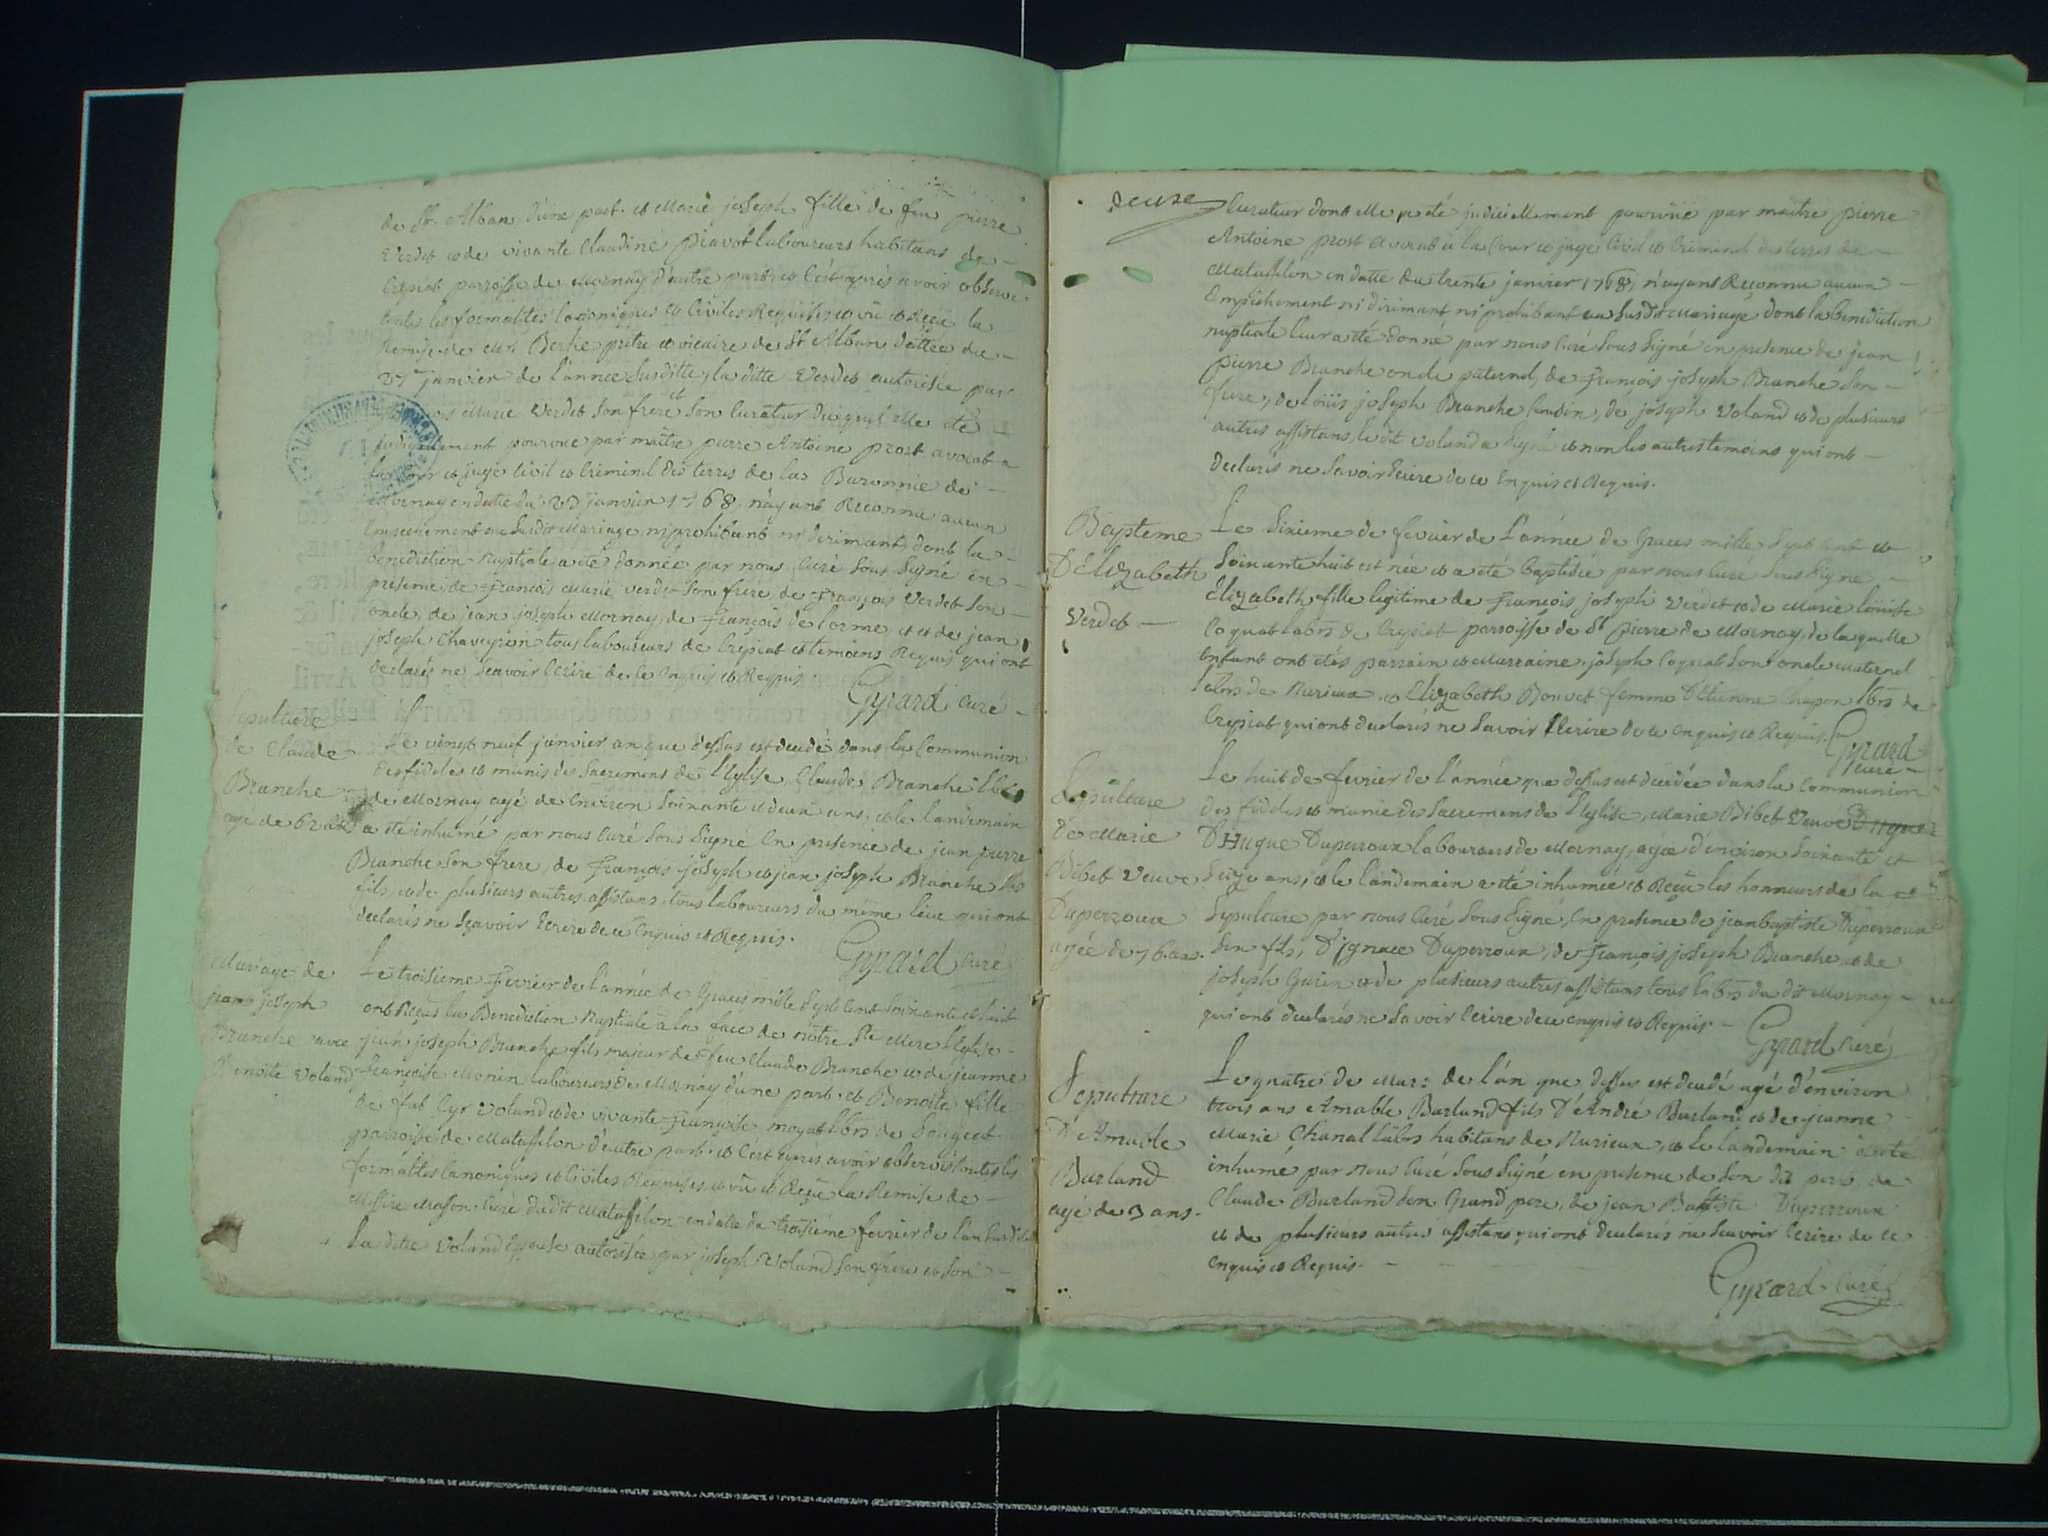 de St. Alban d'une part. et Marie joseph fille de feu pierre
Verdet et de vivante Claudine piavot laboureurs habitans de
Crepiat parroisse de Mornay d'autre part, et c'est après avoir observé
toutes les formalités Canoniques et Civiles Requises et vû et Reçu la
Remise de Mr. Berhe prêtre et vicaire de St Alban dattée du
27e janvier de l'année susditte, la ditte Verdet autorisée par
Marie Verdet son frere et son Curateur duquel elle été
judiciellement pourvue par maître pierre Antoine prost avocat a
la Cour et juge Civil et Criminel des terres de la Baronnie de
Mornay en datte du 27 janvier 1768, n'ayant Reconnu aucun
Empechement au susdit Mariage ni prohibant ni dirimant, dont la
benediction Nuptiale a été donnée par nous Curé sous signé en
presence de François Marie verdet son frere, de François Verdet son
oncle, de jean joseph Mornay, de François de lorme, et et de jean
joseph Chaveyrion tous laboureurs de Crepiat et temoins Requis qui ont
declarés ne Sçavoir Ecrire de ce Enquis et Requis.
Gyrard Curé
Sepulture
de Claude
Branche
agé de 62 ans
Le vingt neuf janvier an que dessus est decedé dans la Communion
des fideles et munis des Sacremens de l'Eglise, Claude Branche lbr
de Mornay agé de Environ soixante et deux ans, et le landemain
a été inhumé par nous Curé Sous Signé En presence de jean pierre
Branche son frere, de François joseph et jean joseph Branche ses
fils, et de plusieurs autres assistans, tous laboureurs du même lieu qui ont
declarés ne sçavoir Ecrire de ce Enquis et Requis.
Gyrard Curé
Mariage de
jean joseph
Branche avec
Benoite Voland
Le troisieme Fevrier de l'année de Graces mille Sept Cent Soixante et huit
ont Reçus la Benediction Nuptiale à la face de nôtre Ste Mere l'Eglise
jean joseph Branche fils majeur de feu Claude Branche et de jeanne
Françoise Monin laboureurs de Mornay d'une part. et Benoite fille
de fut Cyr Voland et de vivante Françoise moyat lbrs de Sougeat
parroisse de Matafelon d'autre part. et C'est apres avoir observés toutes les
formalités Canoniques et Civiles Requises et vû et Reçu la Remise de
Messire Masson Curé dudit Matafelon en datte du troisième fevrier de l'an susdit
la ditte Voland Epouse autorisée par joseph Voland son frere et son
deuse
Curateur dont elle a été judiciellement pourvûë par maître pierre
Antoine prost avocat à la Cour et juge Civil et Criminel des terres de
Matafelon en datte du trente janvier 1768, n'ayans Reconnu aucun
Empêchement ni dirimant ni prohibant au susdit Mariage dont la benediction
nuptiale leur a été donné par nous Curé Sous Signé en presence de jean
pierre Branche oncle paternel, de François joseph Branche son
frere, de Loüis joseph Branche Cousin, de joseph Voland et de plusieurs
autres assistans, le dit voland a signé et non les autres temoins qui ont
declarés ne Savoir Ecrire de ce Enquis et Requis.
Bapteme
D'Elizabeth
Verdet
Le Sixieme de fevrier de l'année de Graces mille Sept Cent et
Soixante huit est née et a été baptisée par nous Curé Sous Signé
Elizabeth fille legitime de François joseph Verdet et de Marie loüise
Coquat labrs de Crepiat parroisse de St pierre de Mornay, de laquelle
Enfant ont étés parrain et Marraine joseph Coquat son oncle maternel
lbrs de Nurieux et Elizabeth Bonvet femme d'Etienne Chapon lbrs de
Crepiat qui ont declarés ne Savoir Ecrire de ce Enquis et Requis.
Gyrard
Curé
Sepulture
de Marie
Bibet Veuve
Duperroux
agée de 76 ans.
Le huit de fevrier de l'année que dessus est decedée dans la Communion
des fideles et munie des Sacremens de l'Eglise, Marie Bibet Veuve
D'Hugue Duperroux laboureurs de Mornay, agée d'environ soixante et
seize ans, et le landemain a été inhumée et Reçu les honneurs de la
Sepulture par nous Curé Sous Signé, En presence de jean baptiste Duperroux
son fils, d'ignace Duperroux, de François joseph Branche et de
joseph Guirin et de plusieurs autres assistans tous labrs du dit Mornay
qui ont declarés ne Savoir Ecrire de ce enquis et Requis.
Gyrard Curé
Sepulture
D'Amable
Burland
agé de 3 ans.
Le quatre de Mars de l'an que dessus est decedé agé d'environ
trois ans Amable Burland fils D'André Burland et de jeanne
Marie Chanal labrs habitans de Nurieux, et le landemain a été
inhumé par nous Curé Sous Signé en presence de son dit pere, de
Claude Burland son Grand pere, de jean Baptiste Duperroux
et de plusieurs autres assistans qui ont declarés ne sçavoir Ecrire de ce
enquis et Requis.
Gyrard Curé